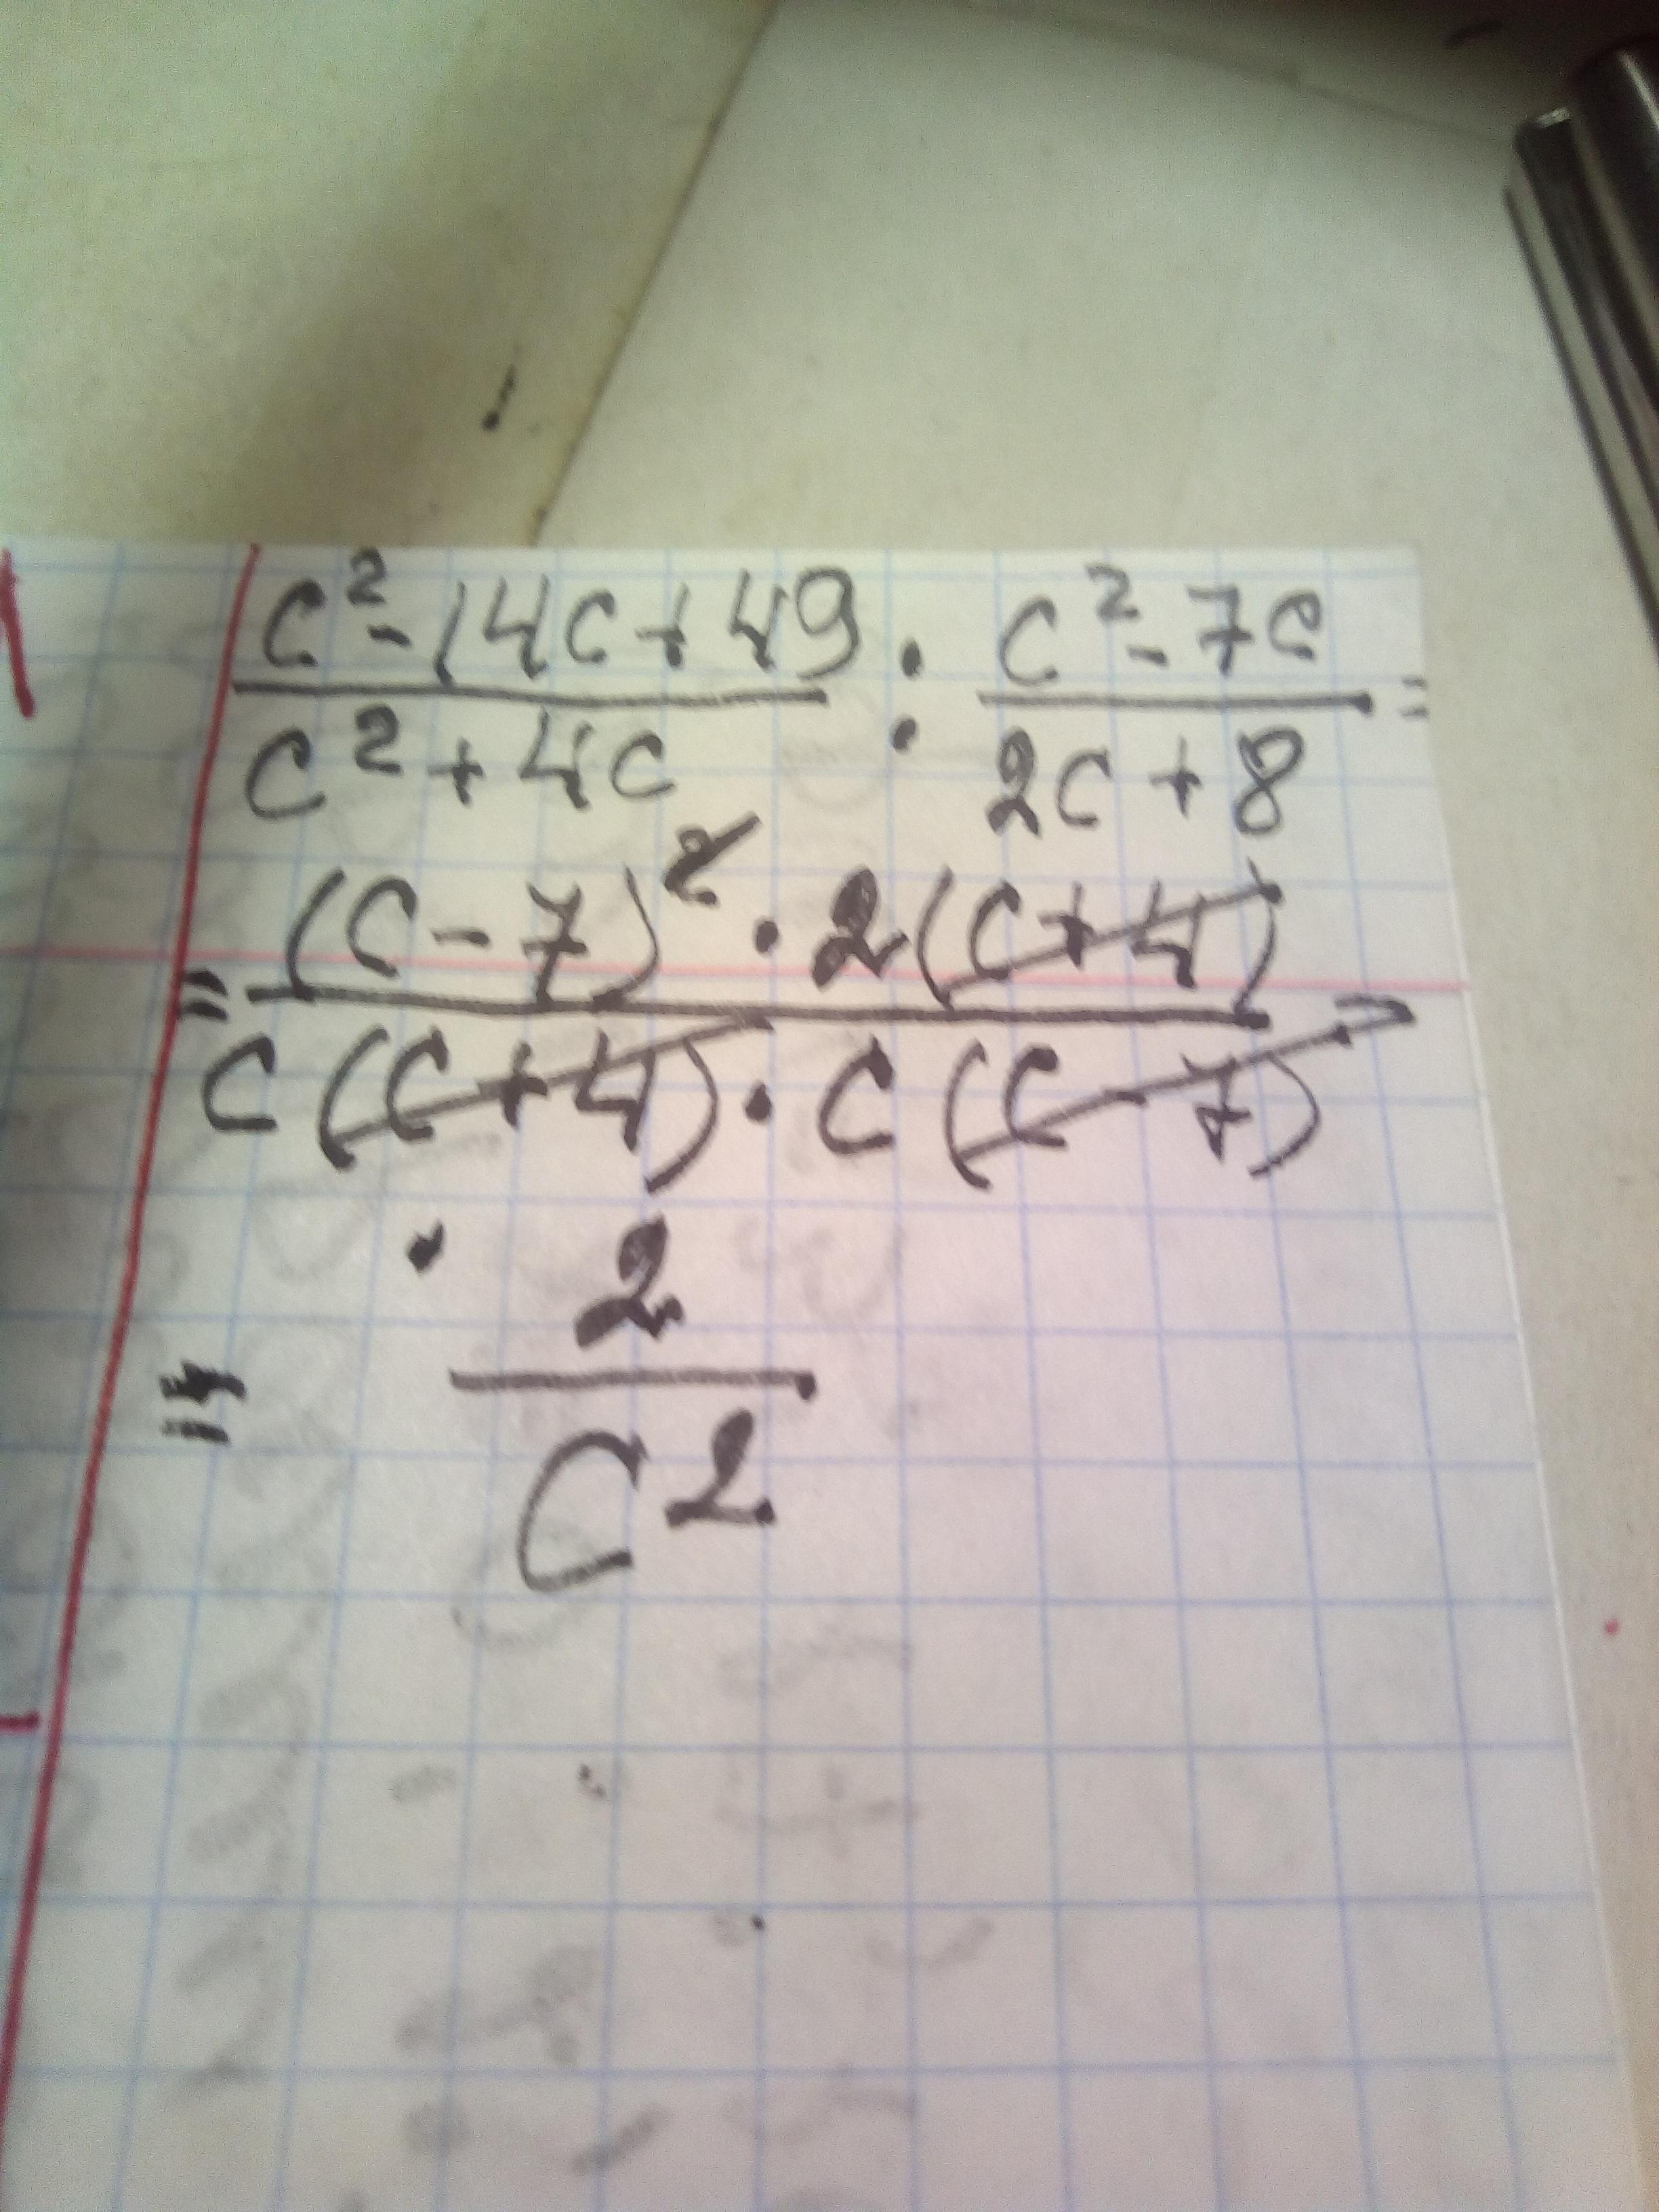 (c² - 14c + 49)/(c² + 4c) : (c² - 7c)/(2c + 8) =
= ((c - 7)² · 2(c + 4))/(c(c + 4) · c(c - 7)) =
= 2/c²